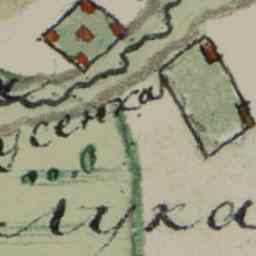 усенка
Лука